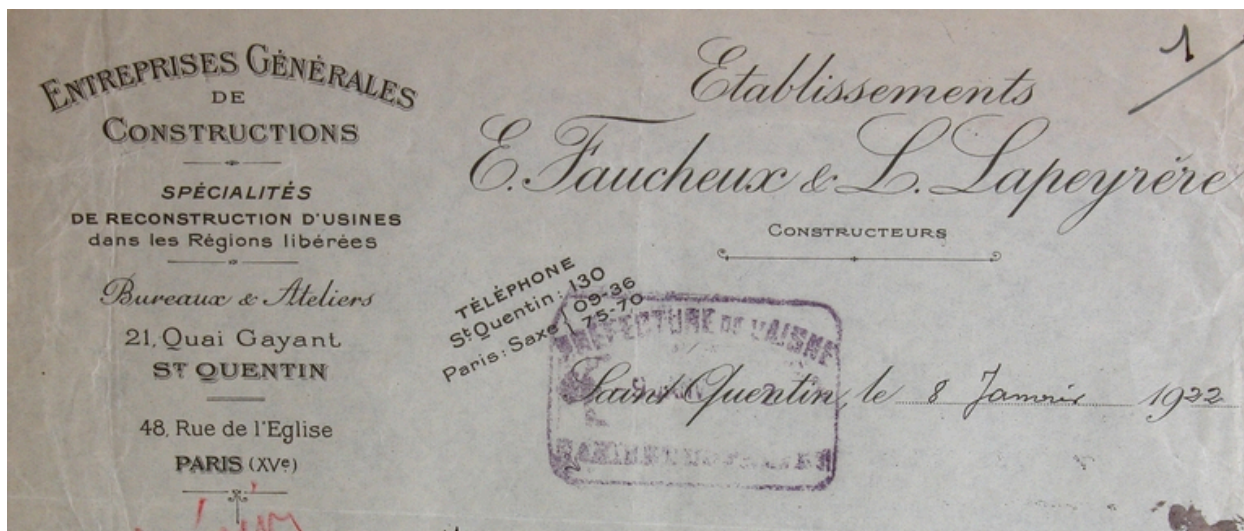 1
ENTREPRISES GÉNÉRALES
DE
CONSTRUCTIONS
SPÉCIALITÉS
DE RECONSTRUCTION D'USINES
dans les Régions libérées
Bureaux & Ateliers
21, Quai Gayant
ST QUENTIN
48, Rue de l'Eglise
PARIS (XVe)
Etablissements
E. Faucheux & L. Lapeyrère
CONSTRUCTEURS
TÉLÉPHONE
St Quentin: 130
Paris: Saxe 09-36
75-70
PRÉFECTURE DE L'AISNE
Saint Quentin, le 8 Janvier 1922